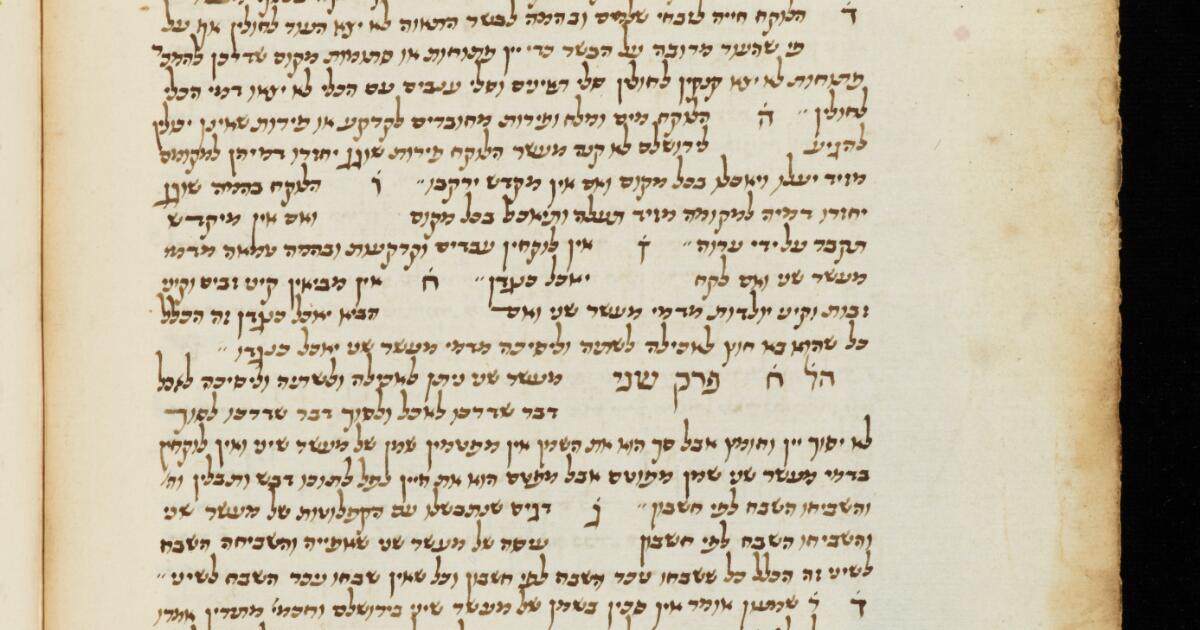 ד הלוקח חייה לזבחי שלמים ובהמה לבשר התאוה לא יצא העור לחולין אף על
פי שהעור מרובה על הבשר כדי יין פתוחות או סתומות מקום שדרכן להמכ'
פתוחות לא יצא קנקין לחולין סלי זיתים וסלי ענבים עם הכלי לא יצאו דמי הכלי
לחולין ה הלוקח מים ומלח ופירות מחוברים לקרקע או פירות שאינן יכולין
להגיע לירושלם לא קנה מעשר הלוקח פירות שוגג יחזרו דמיהן למקומם
מזיד יעלו ויאכלו בכל מקום ואם אין מקדש ירקבו ו הלוקח בהמה שוגג
יחזרו דמיה למקומה מזיד תעלה ותיאכל בכל מקום ואם אין מיקדש
תקבר על ידי עורה ז אין לוקחין עבדים וקרקעות ובהמה טמאה מדמי
מעשר שני ואם לקח יאכל כנגדן ח אין מביאין קיני זבים וקיני
זבות וקיני יולדות מדמי מעשר שני ואם הביא יאכל כנגדן זה הכלל
כל שהוא בא חוץ לאכילה לשתיה ולסיכה מדמי מעשר שני יאכל כנגדו
הל' ח פרק שני מעשר שני ניתן לאכילה ולשתיה ולסיכה לאכל
דבר שדרכו לאכל ולסוך דבר שדרכו לסוך
לא יסוך יין וחומץ אבל סך הוא את השמן אין מפטמין שמן של מעשר שיני ואין לוקחין
בדמי מעשר שני שמן מפוטם אבל מפטם הוא את היין לתוכו דבש ותבלין
והשביחו השבח לפי חשבון ג דגים שנתבשלו עם הקפלוטות של מעשר שני
והשביחו השבח לפי חשבון עיסה של מעשר שני שאפייה והשביחה השבח
לשיני זה הכלל כל ששבחו ניכר השבח לפי חשבון וכל שאין שבחו ניכר השבח לשיני
ד ר' שמעון אומר אין סכין בשמן של מעשר שיני בירושלם וחכמ' מתירין אמרו